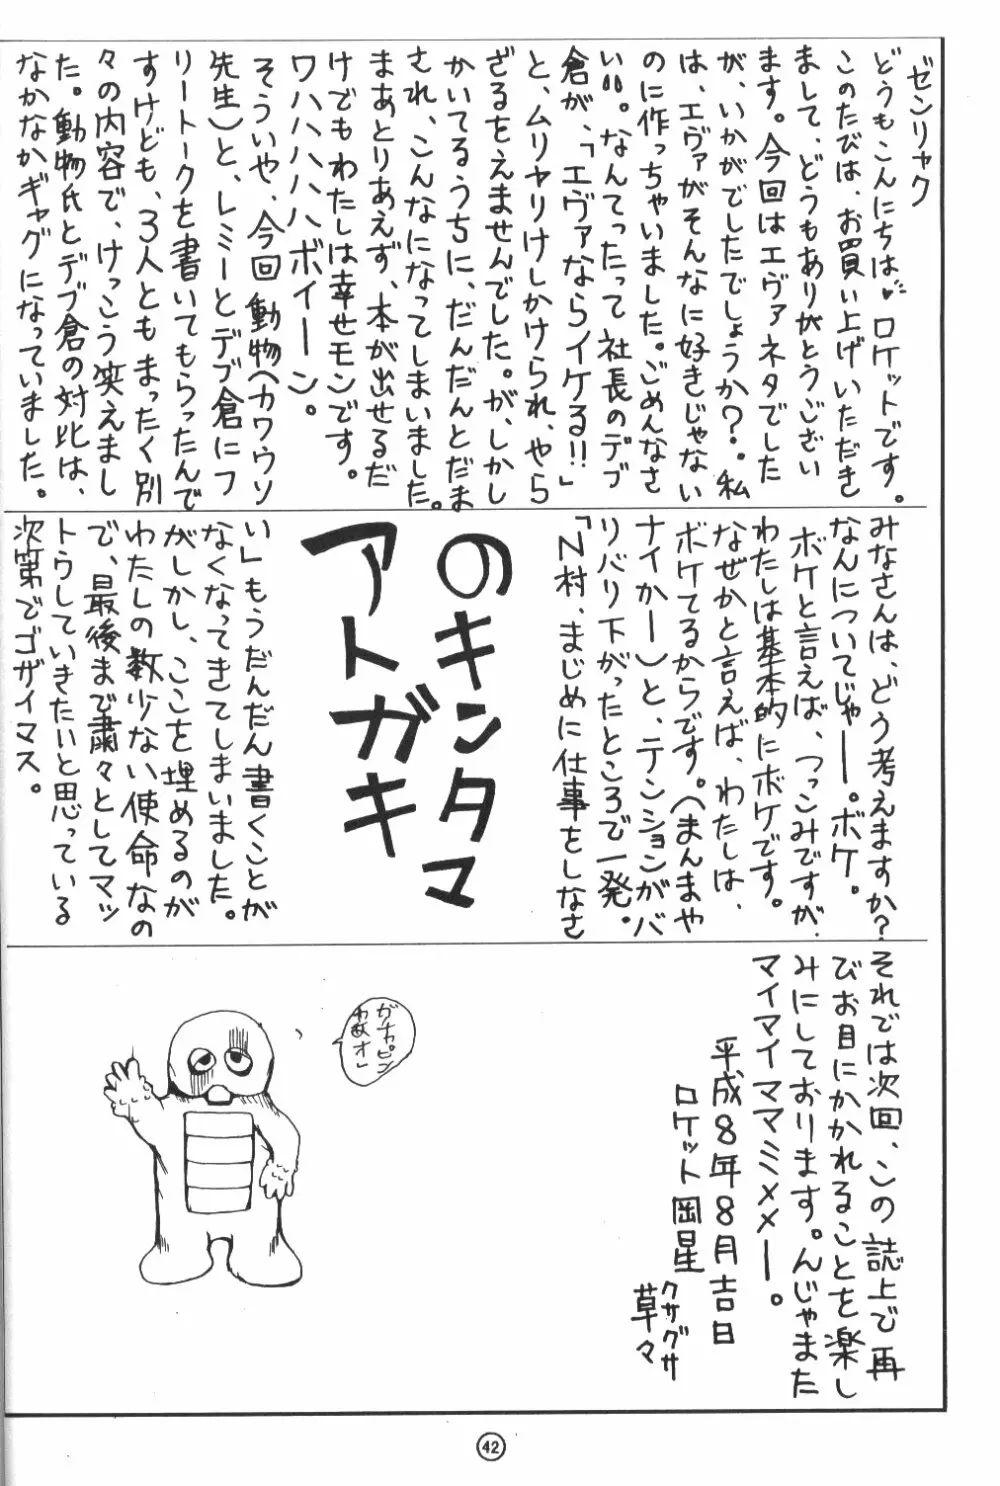 ゼンリャク
どうもこんにちは♥ロケットです。
このたびは、お買い上げいただき
まして、どうもありがとうござい
ます。今回はエヴァネタでした
が、いかがでしたでしょうか?。私
は、エヴァがそんなに好きじゃない
のに作っちゃいました。ごめんなさ
い!!。なんてったって社長のデブ
倉が、「エヴァならイケる!!」
と、ムリヤリけしかけられ、やら
ざるをえませんでした。が、しかし
かいてるうちに、だんだんとだま
され、こんなになってしまいました。
まあとりあえず、本が出せるだ
けでもわたしは幸せモンです。
ワハハハハハボイーン)。
そういや、今回動物(カワウソ
先生)と、レミーとデブ倉にフ
リートークを書いてもらったんで
すけども、3人ともまったく別
々の内容で、けっこう笑えまし
た。動物氏とデブ倉の対比は、
なかなかギャグになっていました。
みなさんは、どう考えますか?
なんについてじゃー。ボケ。
ボケと言えば、つっこみですが、
わたしは基本的にボケです。
なぜかと言えば、わたしは、
ボケてるからです。(まんまや
ナイかー)と、テンションがバ
リバリ下がったところで一発。
「N村、まじめに仕事をしなさ
のキンタマ
アトガキ
い」もうだんだん書くことが
なくなってきてしまいました。
がしかし、ここを埋めるのが
わたしの数少ない使命なの
で、最後まで粛々としてマッ
トウしていきたいと思っている
次第でゴザイマス。
それでは次回、この誌上で再
びお目にかかれることを楽し
みにしております。んじゃまた
マイマイママミメメー。
平成8年8月吉日
ロケット岡星
クサグサ
草々
ガチャピン